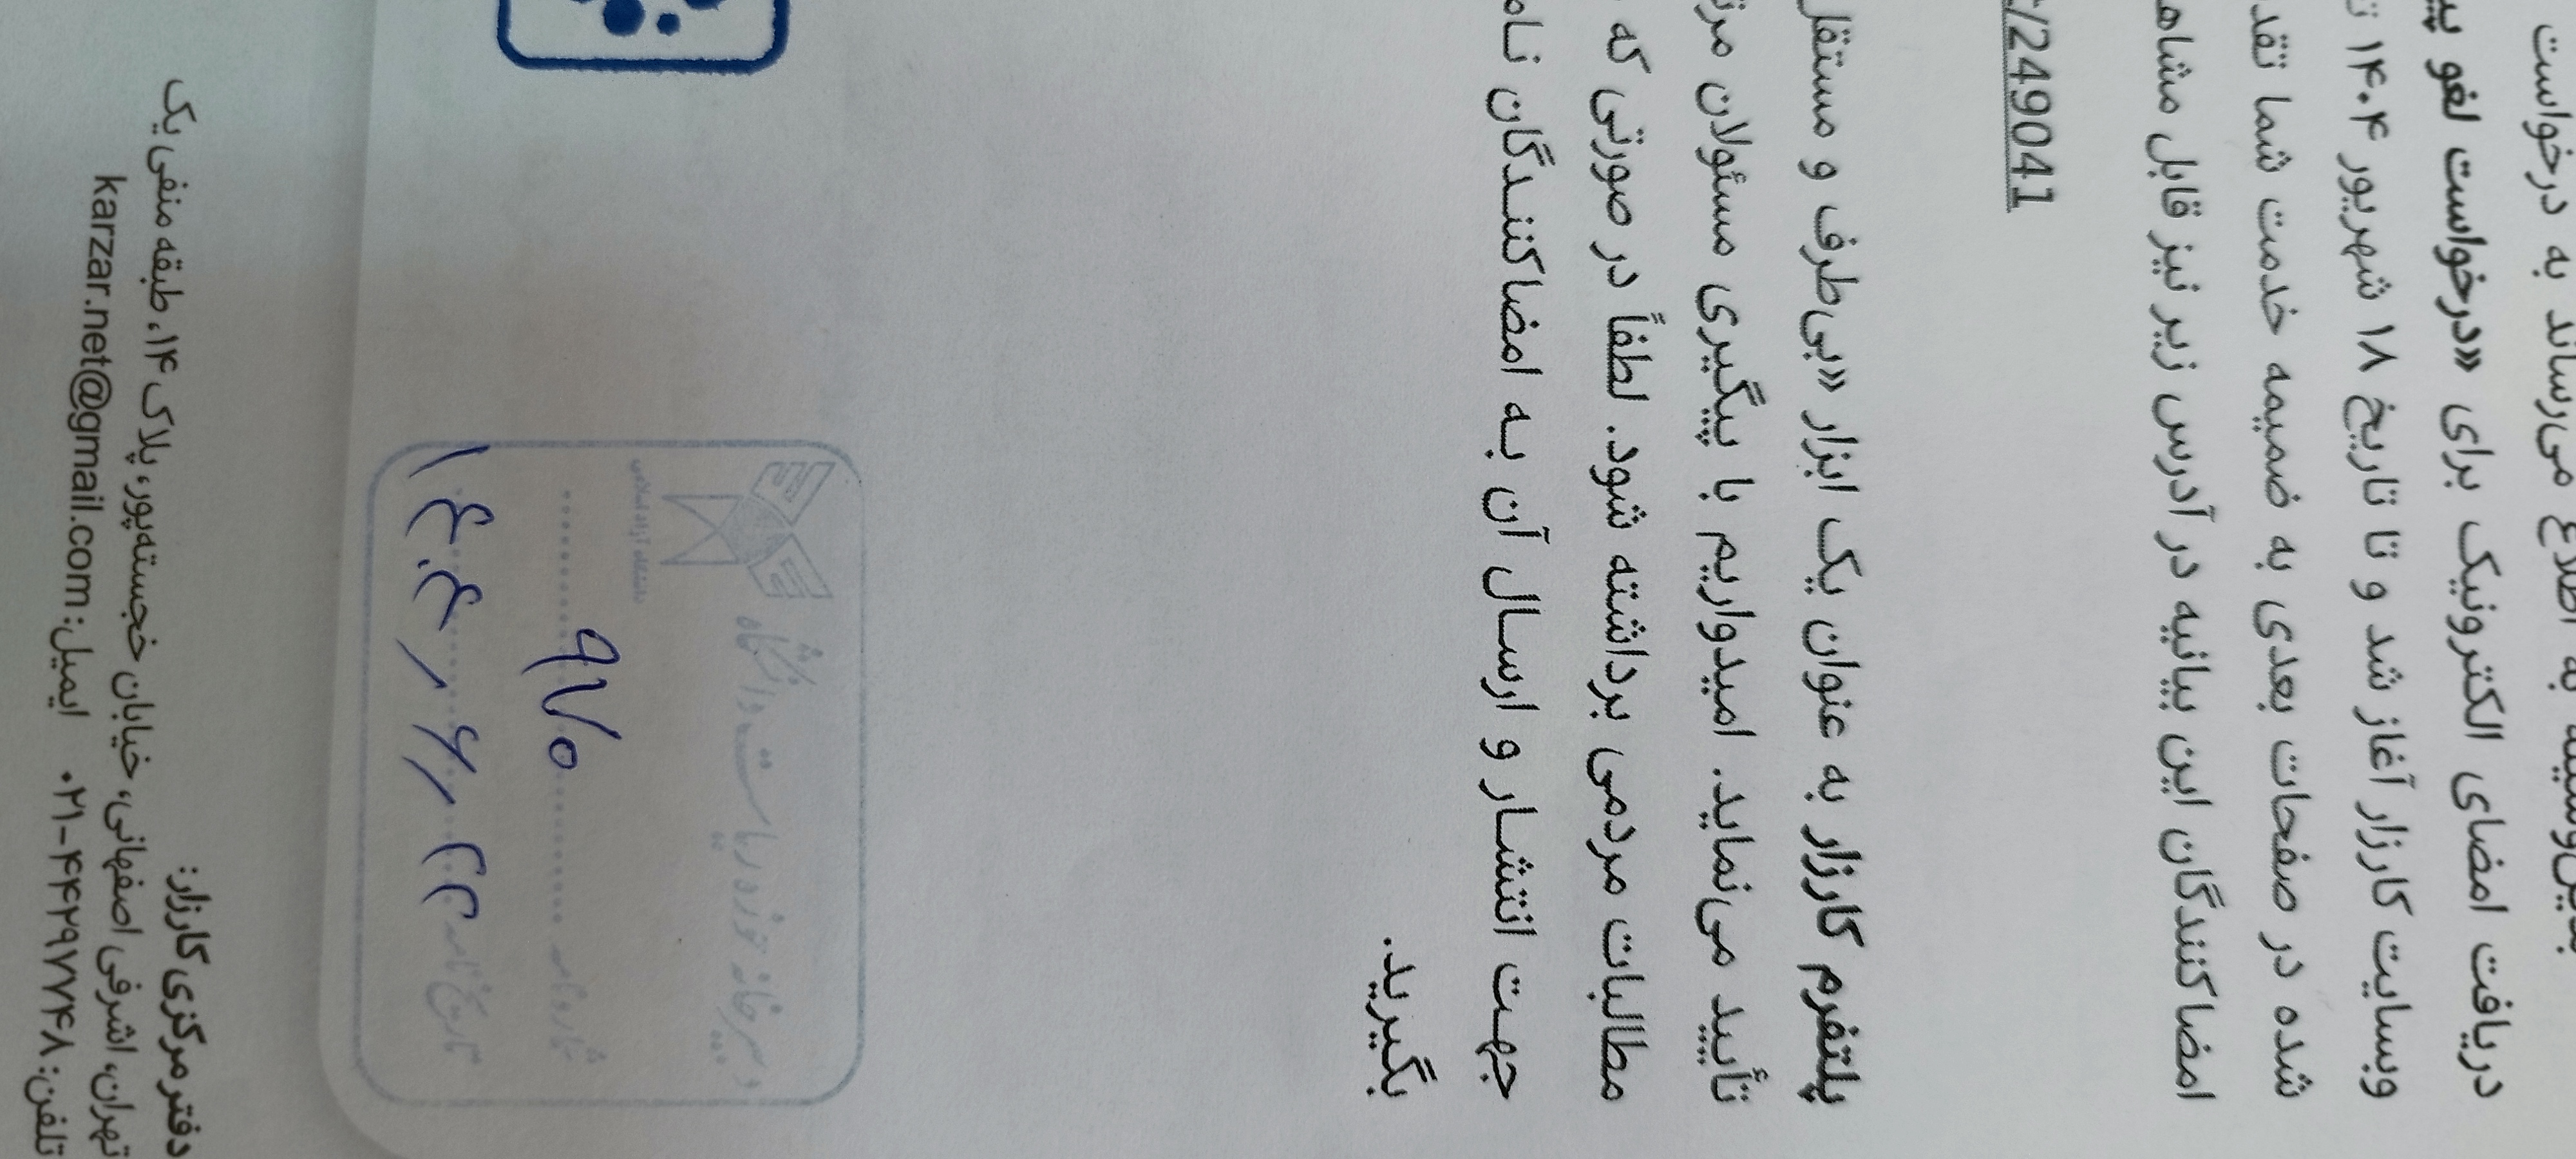 به اطلاع می‌رساند به درخواست
دریافت امضای الکترونیک برای «درخواست لغو
وبسایت کارزار آغاز شد و تا تاریخ ۱۸ شهریور ۱۴۰۴
شده در صفحات بعدی به ضمیمه خدمت شما
امضاکنندگان این بیانیه در آدرس زیر نیز قابل
/249041
پلتفرم کارزار به عنوان یک ابزار «بی‌طرف و مستقل
تأیید می‌نماید. امیدواریم با پیگیری مسئولان
مطالبات مردمی برداشته شود. لطفاً در صورتی که
جهت انتشار و ارسال آن به امضاکنندگان
بگیرید.
دبیرخانه حوزه ریاست دانشگاه
دانشگاه آزاد اسلامی
شماره نامه
تاریخ نامه
دفتر مرکزی کارزار:
تهران، اشرفی اصفهانی، خیابان خجسته‌پور، پلاک ۱۴، طبقه منفی یک
تلفن: ۰۲۱-۴۴۲۹۷۷۴۸ ایمیل: karzar.net@gmail.com